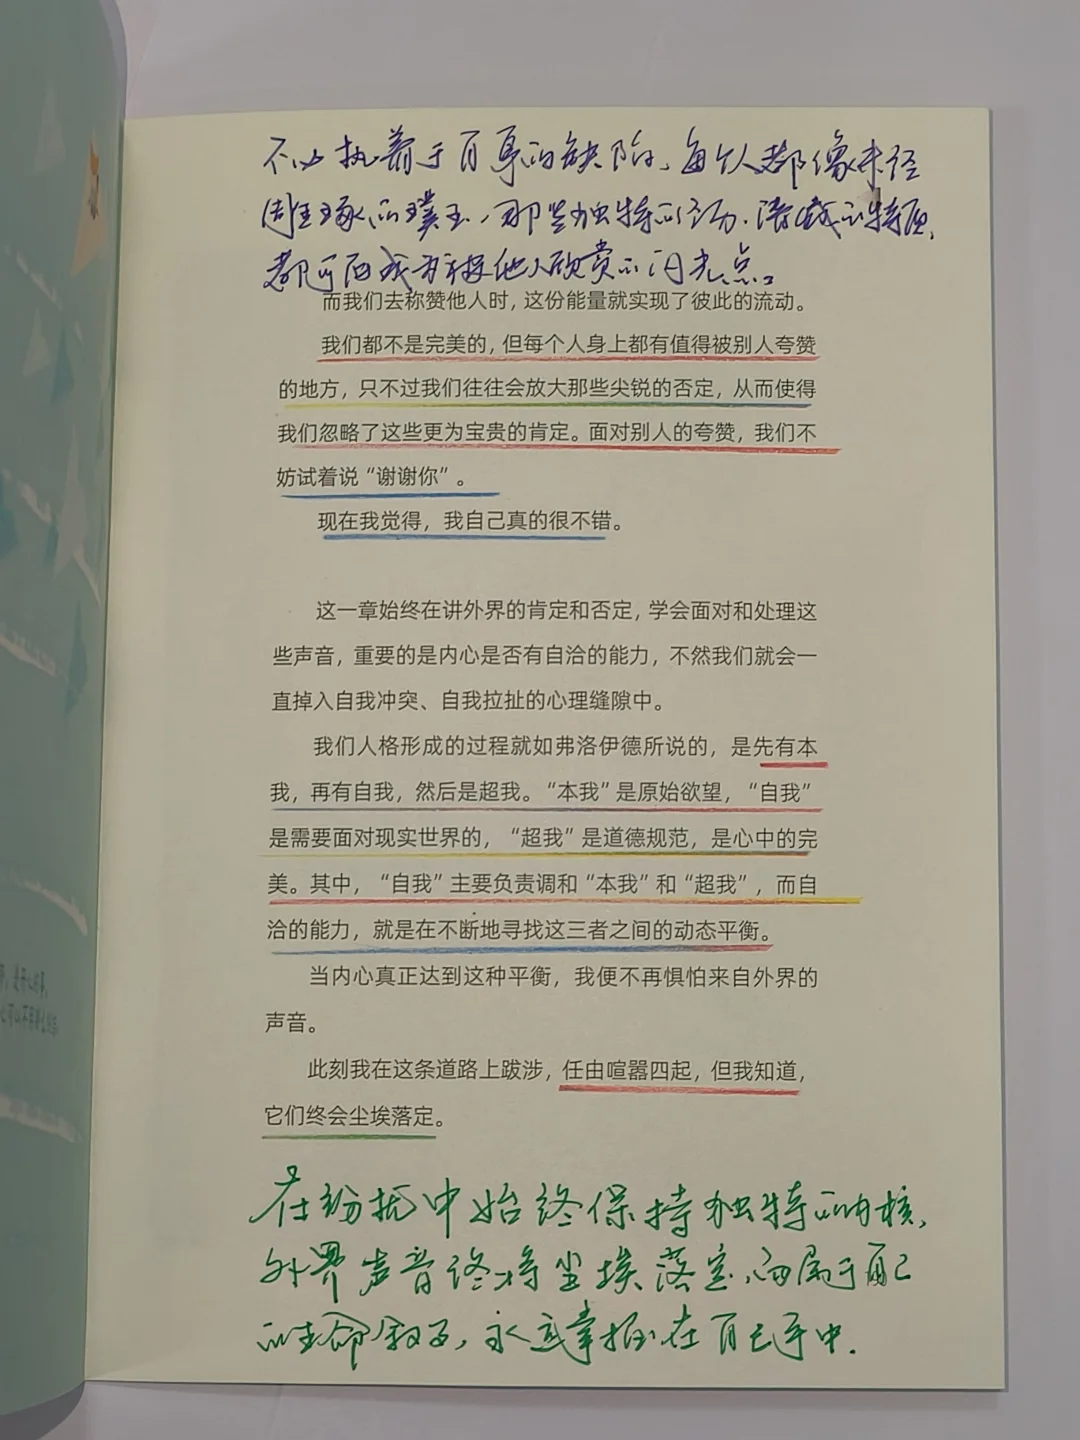 不必执着于自身的缺陷,每个人都像未经
周琢的璞玉,那些独特的经历、潜藏的特质,
都可因成为被他人欣赏的闪光点。
而我们去称赞他人时，这份能量就实现了彼此的流动。
我们都不是完美的，但每个人身上都有值得被别人夸赞
的地方，只不过我们往往会放大那些尖锐的否定，从而使得
我们忽略了这些更为宝贵的肯定。面对别人的夸赞，我们不
妨试着说“谢谢你”。
现在我觉得，我自己真的很不错。
这一章始终在讲外界的肯定和否定，学会面对和处理这
些声音，重要的是内心是否有自洽的能力，不然我们就会一
直掉入自我冲突、自我拉扯的心理缝隙中。
我们人格形成的过程就如弗洛伊德所说的，是先有本
我，再有自我，然后是超我。“本我”是原始欲望，“自我”
是需要面对现实世界的，“超我”是道德规范，是心中的完
美。其中，“自我”主要负责调和“本我”和“超我”，而自
洽的能力，就是在不断地寻找这三者之间的动态平衡。
当内心真正达到这种平衡，我便不再惧怕来自外界的
声音。
此刻我在这条道路上跋涉，任由喧嚣四起，但我知道，
它们终会尘埃落定。
在纷扰中始终保持独特的内核,
外界声音终将尘埃落定,而属于自己
的生命叙事,永远掌握在自己手中.